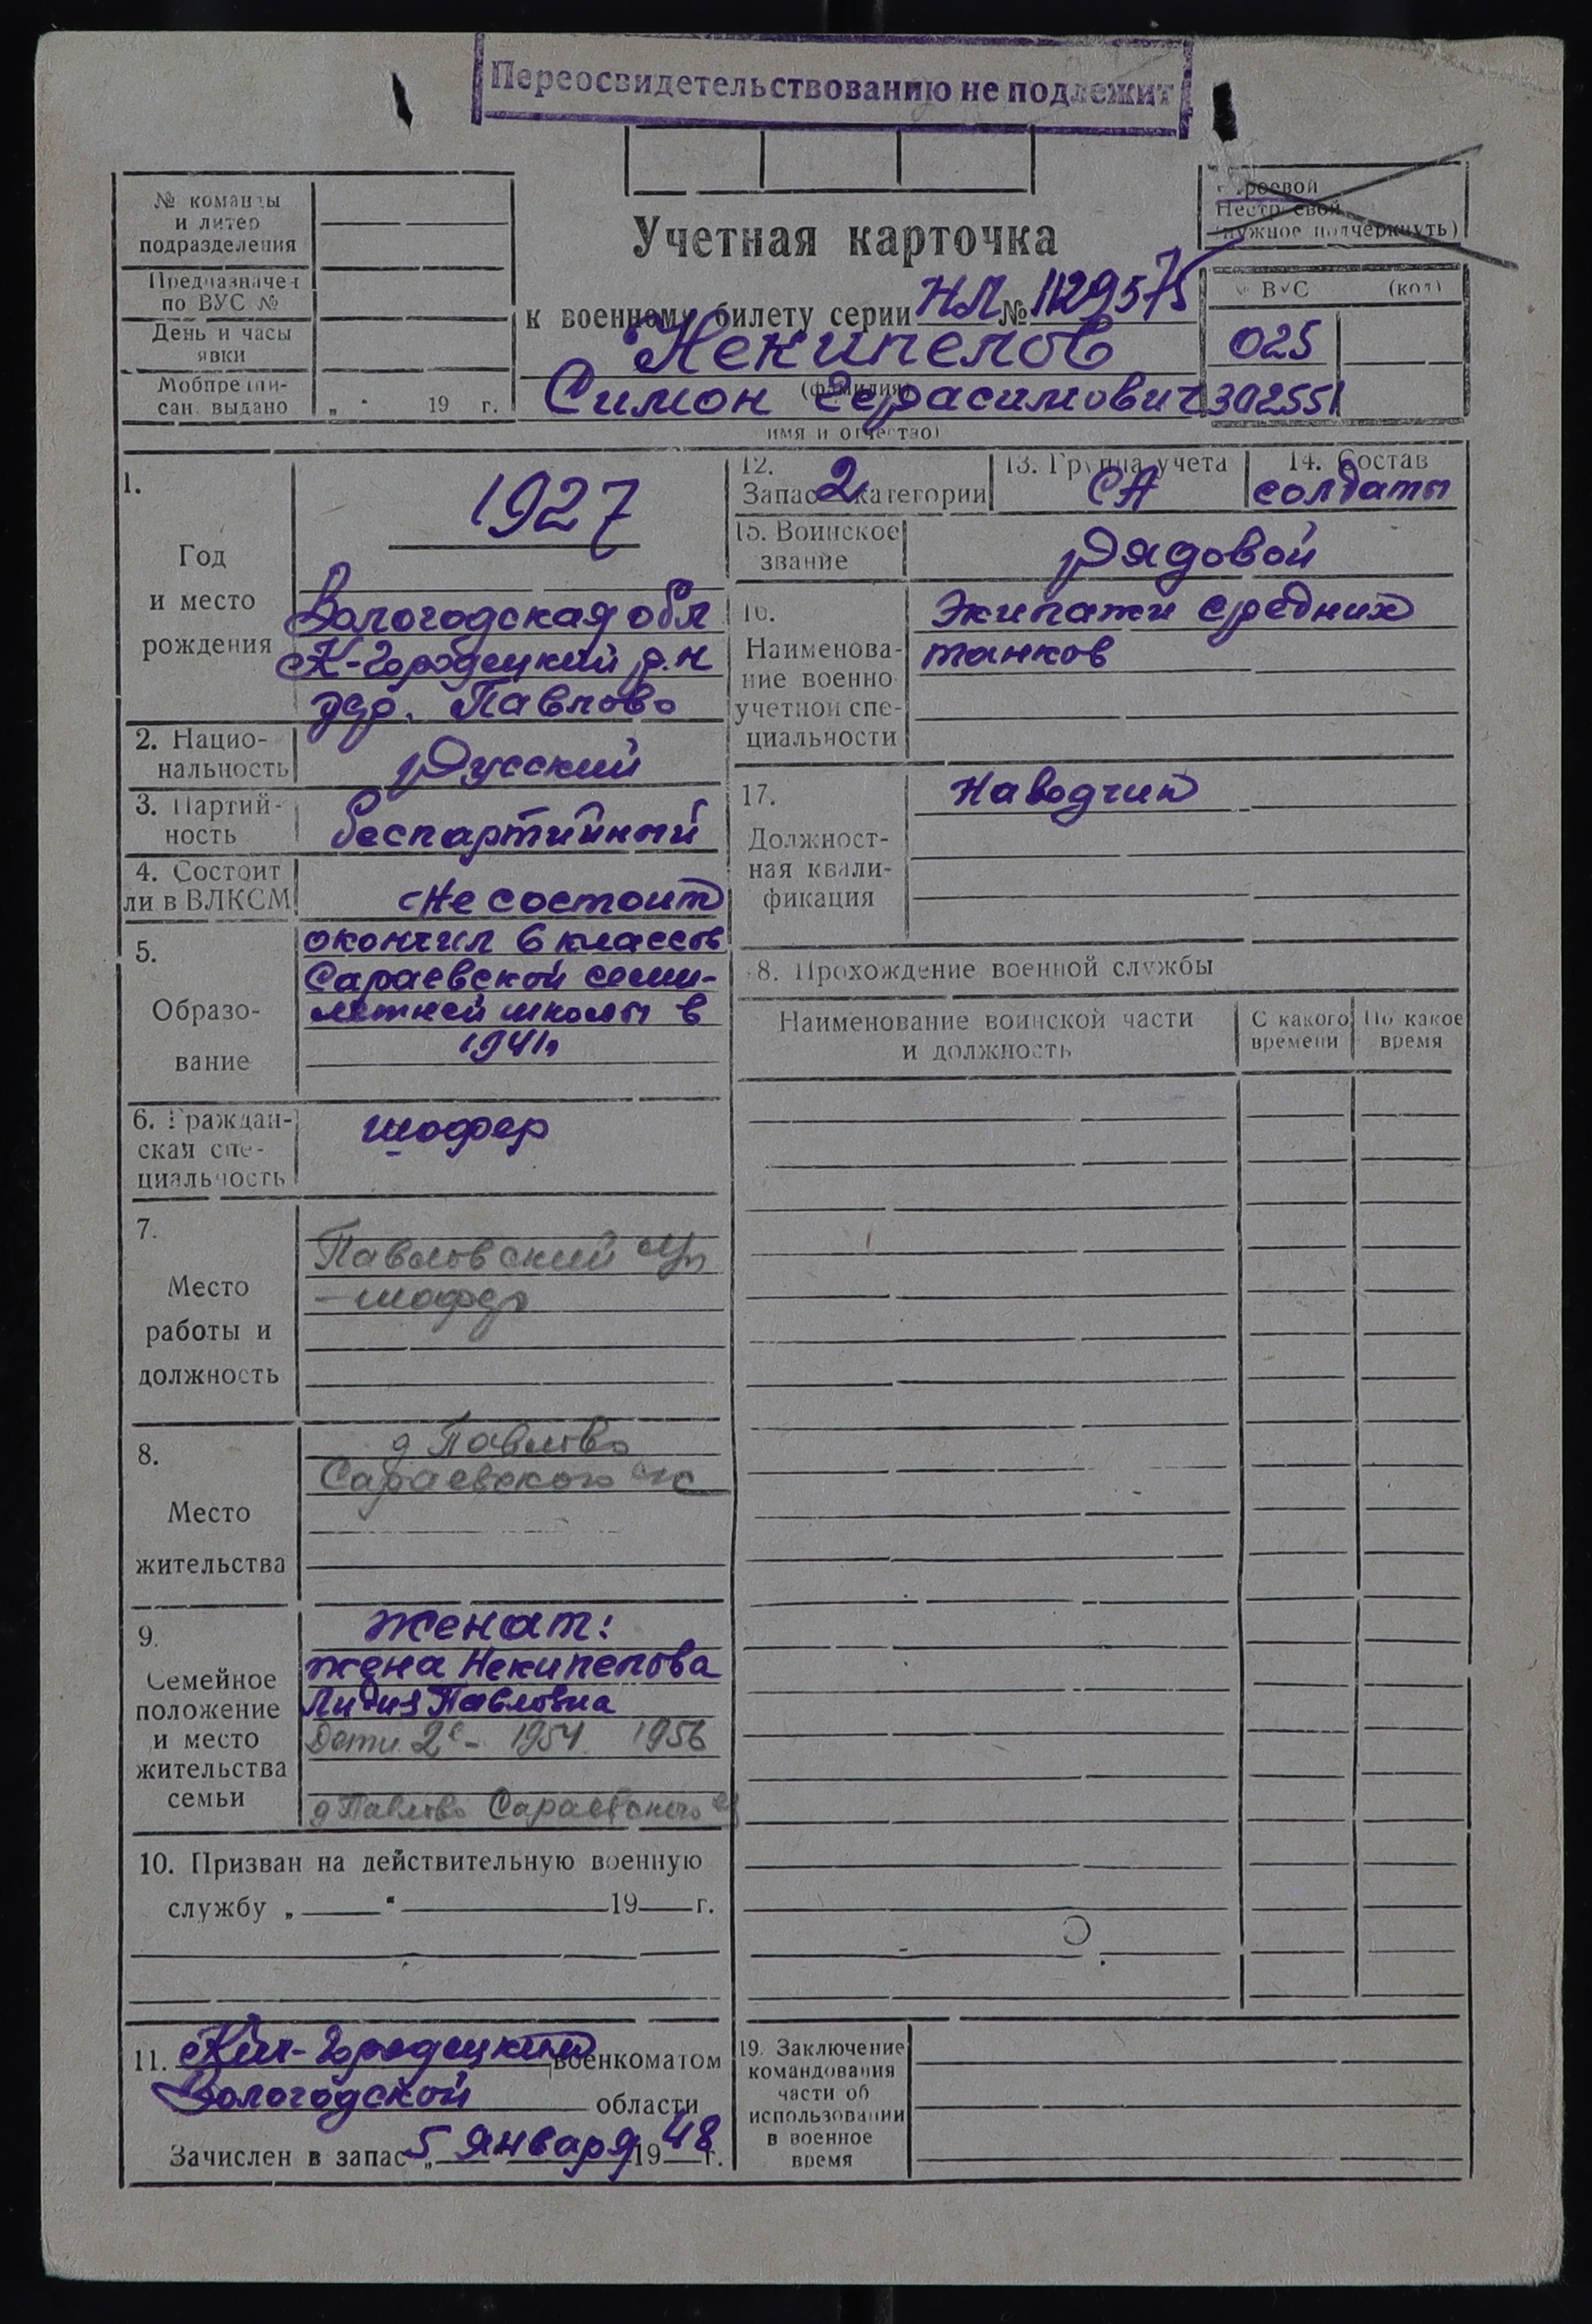 Переосвидетельствованию не подлежит
№ команды
и литер
подразделения
Предназначен
по ВУС №
День и часы
явки
Мобпредпи-
сан. выдано „ “ 19 г.
Строевой
Нестроевой
(нужное подчеркнуть)
Учетная карточка
к военному билету серии НЛ № 1129575
Некипелов
(фамилия)
Симон Герасимович
(имя и отчество)
№ ВУС (код)
025
302551
1.
Год
и место
рождения
1927
Вологодская обл
К-Городецкий р.н
дер. Павлово
2. Нацио-
нальность
Русский
3. Партий-
ность
беспартийный
4. Состоит
ли в ВЛКСМ
Не состоит
5.
Образо-
вание
окончил 6 классов
Сараевской семи-
летней школы в
1941г
6. Граждан-
ская спе-
циальность
шофер
7.
Место
работы и
должность
Павловский
-шофер
8.
Место
жительства
д Павлово
Сараевского с/с
9.
Семейное
положение
и место
жительства
семьи
Женат:
жена Некипелова
Лидия Павловна
Дети 2е- 1954 1956
д Павлово Сараевского
10. Призван на действительную военную
службу „ “ 19 г.
11. Кич-Городецким военкоматом
Вологодской области
Зачислен в запас „5 января 1948 г.
12.
Запас 2 категории
13. Группа учета
СА
14. Состав
солдаты
15. Воинское
звание
Рядовой
16.
Наименова-
ние военно
учетной спе-
циальности
Экипажи средних
танков
17.
Должност-
ная квали-
фикация
Наводчик
18. Прохождение военной службы
Наименование воинской части
и должность
С какого
времени
По какое
время
19. Заключение
командования
части об
использовании
в военное
время